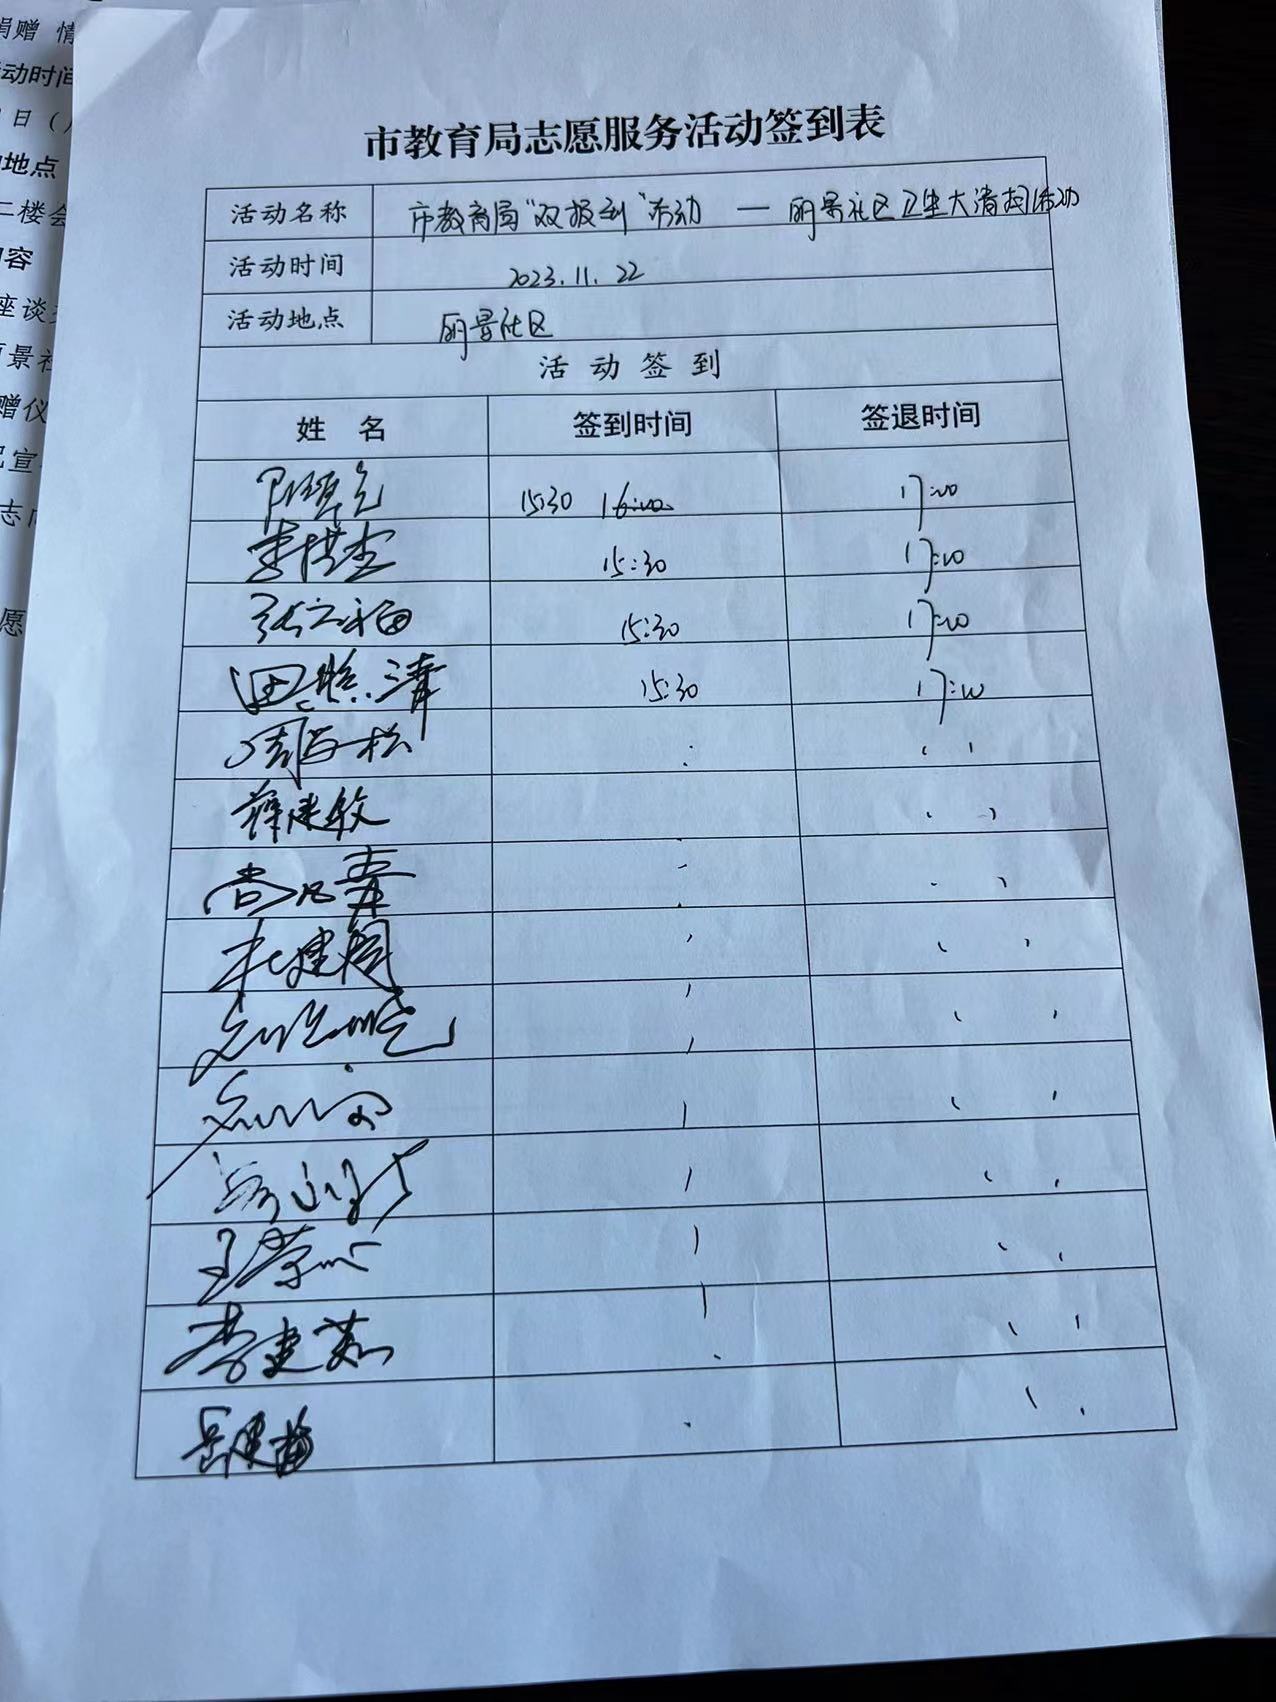 捐赠 情
动时间
日（
地点
二楼会
容
座谈
景社
赠仪
宣
志
愿
市教育局志愿服务活动签到表
活动名称 市教育局“双报到”活动 — 丽景社区卫生大清扫活动
活动时间 2023.11.22
活动地点 丽景社区
活动签到
姓 名 签到时间 签退时间
15:30 16:00 17:00
李洪杰 15:30 17:00
张立福 15:30 17:00
田照清 15:30 17:00
周百松
薛建敏
杜建国
李建茹
岳建梅